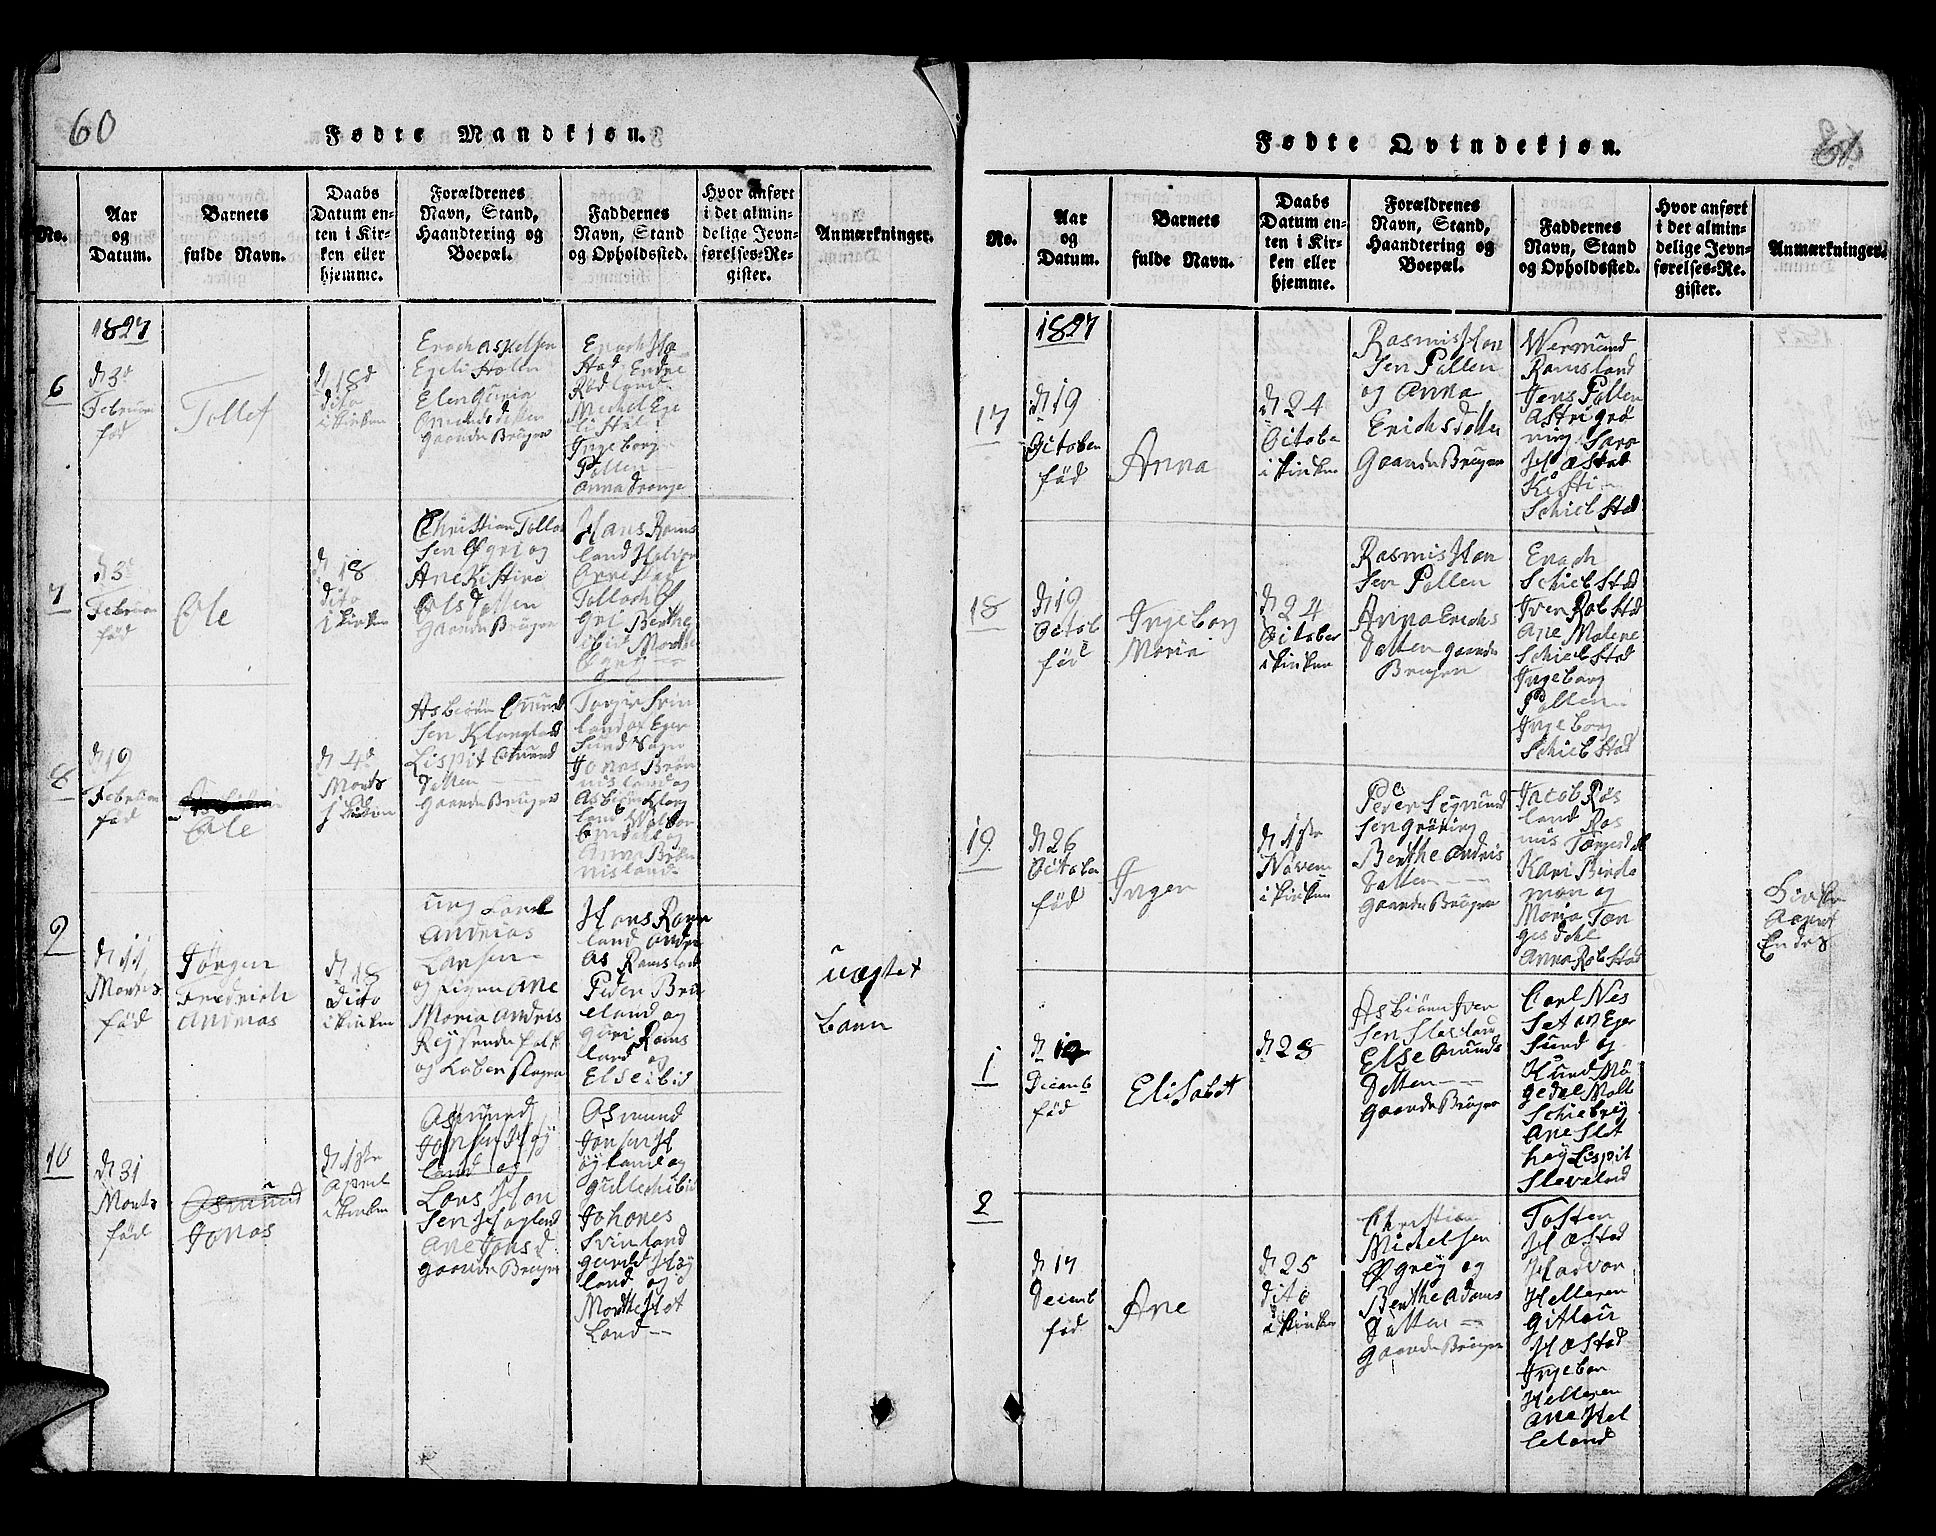 60
Fødte Mandkjøn.
No.
Aar
og
Datum.
Barnets
fulde Navn.
Daabs
Datum en-
ten i Kir-
ken eller
hjemme.
Forældrenes
Navn, Stand,
Haandtering og
Boepæl.
Faddernes
Navn, Stand
og Opholdssted.
Hvor anført
i det almin-
delige Jevn-
førelses-Re-
gister.
Anmærkninger.
1827
6
d 3d
Februar
fød
Tollef
d 18d
Dito
i Kirken
Enoch Askelsen
Egelistolen
Elen Guria
Omunds datten
Gaarde Brüger
Enoch Hæ
Stad Endre
Rødland
Michel Ege
listöl i
Ingeborg
Pollen
Anna Drange
7
d 3d
Februar
fød
Ole
d 18
Dito
i Kirken
Christian Tollas
sen Øgri og
Ane Kistina
Ols datten
Gaarde Brüger
Hans Rams
land Halvor
Tollach Ø
gri Berthe
ibid Marthe
Øgri
8
d 19
Februar
fød
Ole
d 4d
Marts
i Kirken
Asbiörn Omund
sen Klangland
Lispit Omund
datten
Gaarde Brüger
Torgir Svin
land og Eger
sund Sogn
Jonas Brön
nisland og
Asbiörn Klang
land
Omdal og
Anna Brön
nisland
9
d 11
Marts
fød
Jørgen
Fredrich
Andreas
d 18
Dito
i Kirken
ung Karl
Andreas
Larsen
og Pigen Ane
Maria Andris
Reysende Folk
Hans Rams
land Andre
as Ramsland
Peder Bru
eland og
Guri Rams
land og
Else ibid
uægtet
Barn
10
d 31
Marts
fød
Asmund
Jonas
d 1ste
April
i Kirken
Asmund
Jonsen Høy
land og
Lars Han
sen Hogland
Ane Jons d
Gaarde Brüger
Osmund
Jonsen H
öyland og
Gullech ibid
Johanes
Svinland
Guneld Høy
land og
Marthe Slot
Land
Fødte Qvindekjøn.
No.
Aar
og
Datum.
Barnets
fulde Navn.
Daabs
Datum en-
ten i Kir-
ken eller
hjemme.
Forældrenes
Navn, Stand,
Haandtering og
Boepæl.
Faddernes
Navn, Stand
og Opholdssted.
Hvor anført
i det almin-
delige Jevn-
førelses-Re-
gister.
Anmærkninger.
1827
17
d 19
October
fød
Anna
d 24
October
i Kirken
Rasmis Han
sen Pollen
og Anna
Erichsdatten
Gaarde Brüger
Wermund
Ramsland
Jens Pollen
Astri grö
ning Sara
Hæstad
Kisti
Schiebstad
18
d 19
Octob
fød
Ingeborg
Maria
d 24
October
i Kirken
Rasmis Han
sen Pollen
Anna Erichs
datten gaarde
Brugere
Enoch
Schiebstad
Iver Robstad
Ane Malene
Schiebstad
Ingeborg
Pollen
Ingeborg
Schiebstad
19
d 26
October
fød
Ingen
d 1ste
Novem
i Kirken
Peder Segmund
sen gröning
Berthe Andris
datten
Gaarde Brüger
Jacob Røs
land Ras
mus Torgisdal
Kari Birke
moen og
Maria Tor
gesdahl
Anna Robstad
1
Decemb
fød
Elisabet
d 25
Asbiörn Iver
sen Sleveland
Else Omunds
datten
Gaarde Brüger
Carl Nes
set og Eger
sund og
Knud Mö
gedal Malt
Schiebrey
Ane Slet
hey Lispit
Sleveland
2
d 17
Decemb
fød
Ane
d 25
Dito
i Kirken
Christian
Michelsen
Øgrey og
Berthe Adams
datter
Gaarde Brüger
Tosten
Hæstad
Halvor
Helleren
Gitlaur
Hæstad
Ingebor
Helleren
Ane Hel
leland